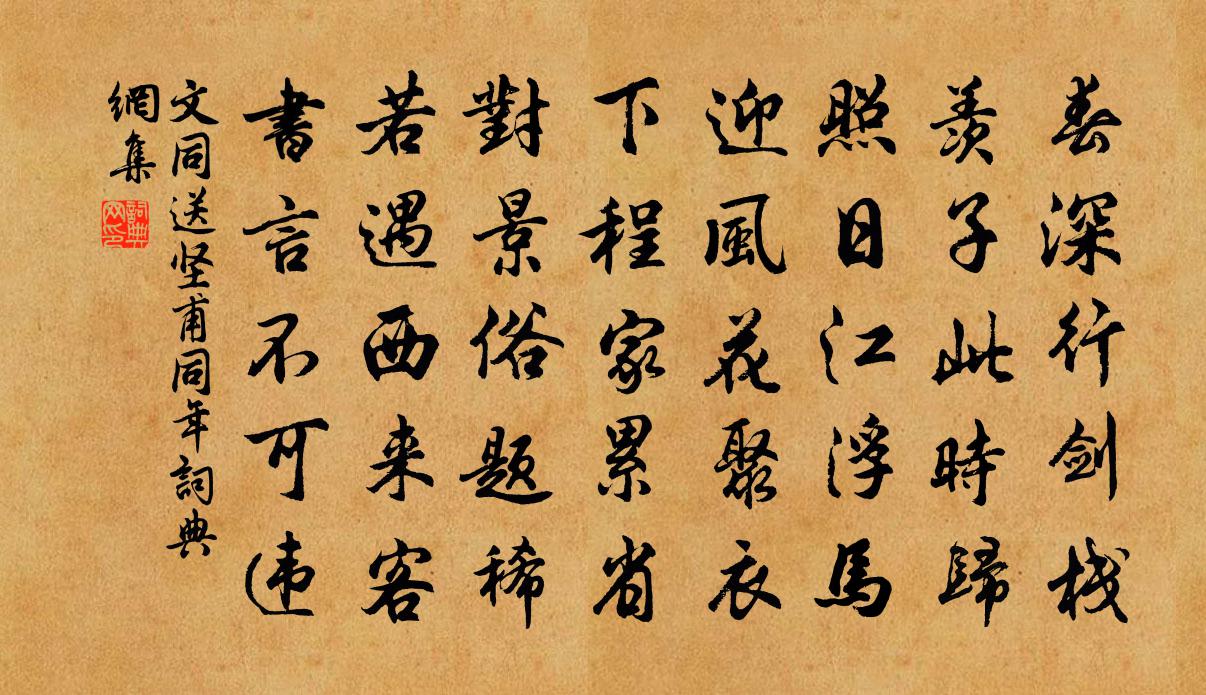 春深行剑栈
羨子此時歸
照日江浮馬
迎風花聚衣
下程家累省
對景俗题稀
若遇西来客
書言不可违
文同送坚甫同年詞典
網集
詞典
网印